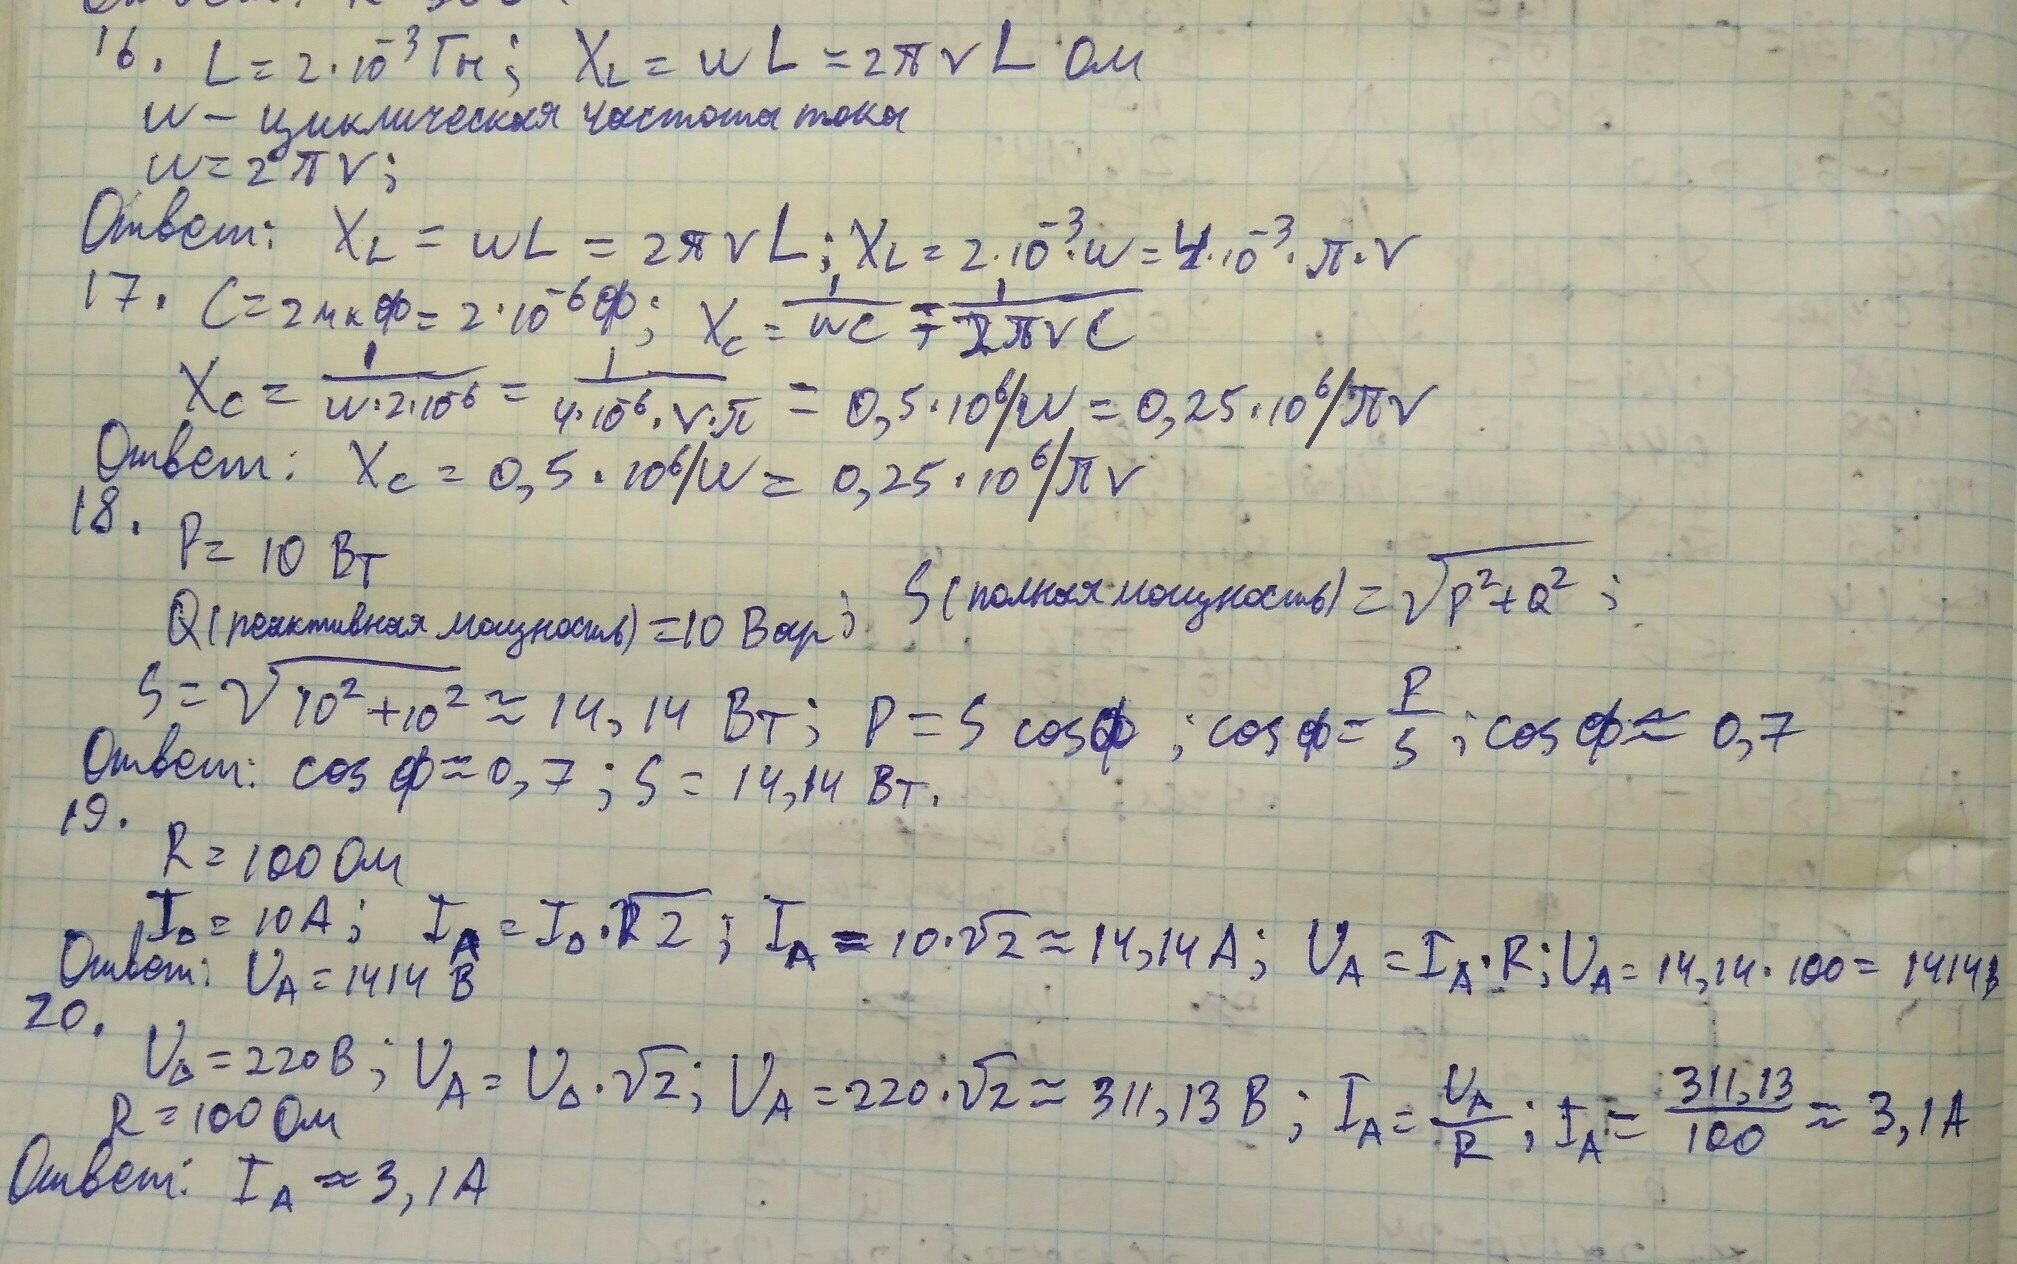 16. L = 2·10⁻³ Гн; X_L = wL = 2πνL Ом
w – циклическая частота тока
w = 2πν;
Ответ: X_L = wL = 2πνL; X_L = 2·10⁻³·w = 4·10⁻³·π·ν
17. C = 2мкф = 2·10⁻⁶ф; X_c = 1/wC = 1/2πνC
X_c = 1/w·2·10⁻⁶ = 1/4·10⁻⁶·ν·π = 0,5·10⁶/w = 0,25·10⁶/πν
Ответ: X_c = 0,5·10⁶/w = 0,25·10⁶/πν
18.
P = 10 Вт
Q (реактивная мощность) = 10 Вар; S (полная мощность) = √P²+Q²;
S = √10²+10² ≈ 14,14 Вт; P = S cosф; cosф = P/S; cosф ≈ 0,7
Ответ: cosф ≈ 0,7; S = 14,14 Вт.
19.
R = 100 Ом
I_D = 10А; I_A = I_D·√2; I_A = 10·√2 ≈ 14,14А; U_A = I_A·R; U_A = 14,14·100 = 1414В
Ответ: U_A = 1414 В
20.
U_D = 220В; U_A = U_D·√2; U_A = 220·√2 ≈ 311,13 В; I_A = U_A/R; I_A = 311,13/100 ≈ 3,1А
R = 100 Ом
Ответ: I_A ≈ 3,1А